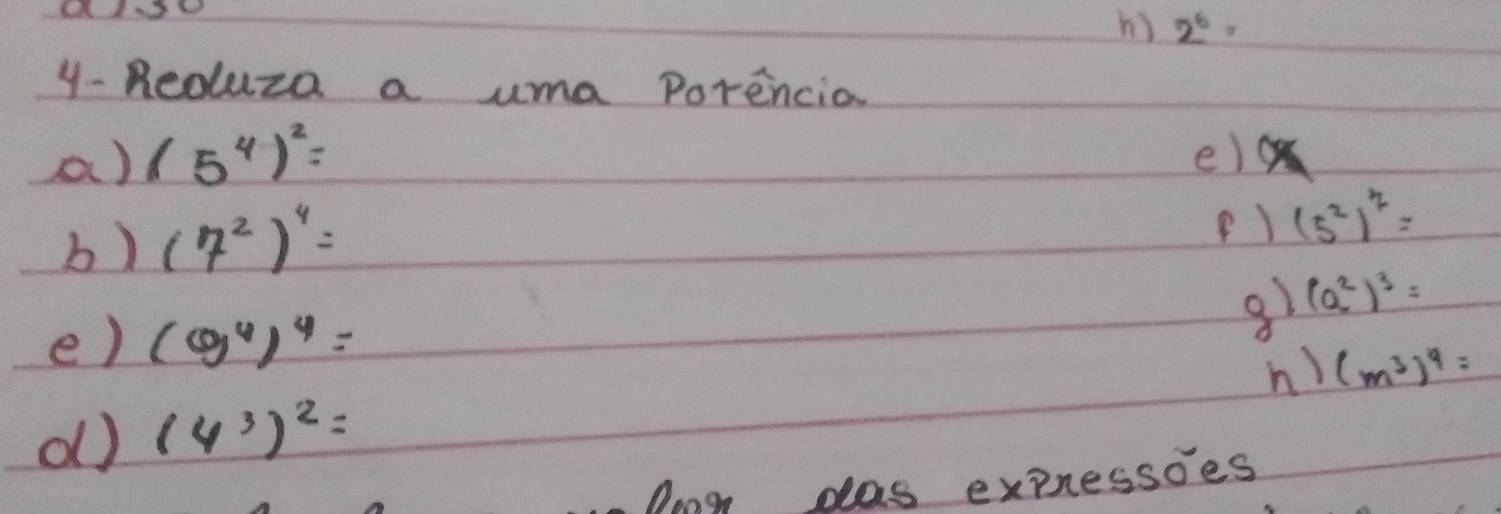 h) 2⁶.
4- Reduza a uma Potência
a) (5⁴)²=
e)
b) (7²)⁴=
f) (5²)⁷=
g) (a²)³=
e) ( ⁴)⁴=
h) (m³)⁹=
d) (4³)²=
das expressões